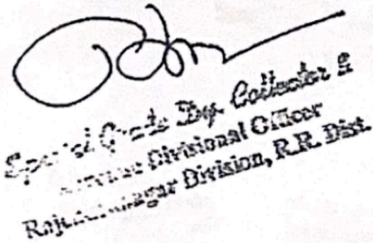 Special Grade Dy. Collector &
Divisional Officer
Rajendranagar Division, R.R. Dist.